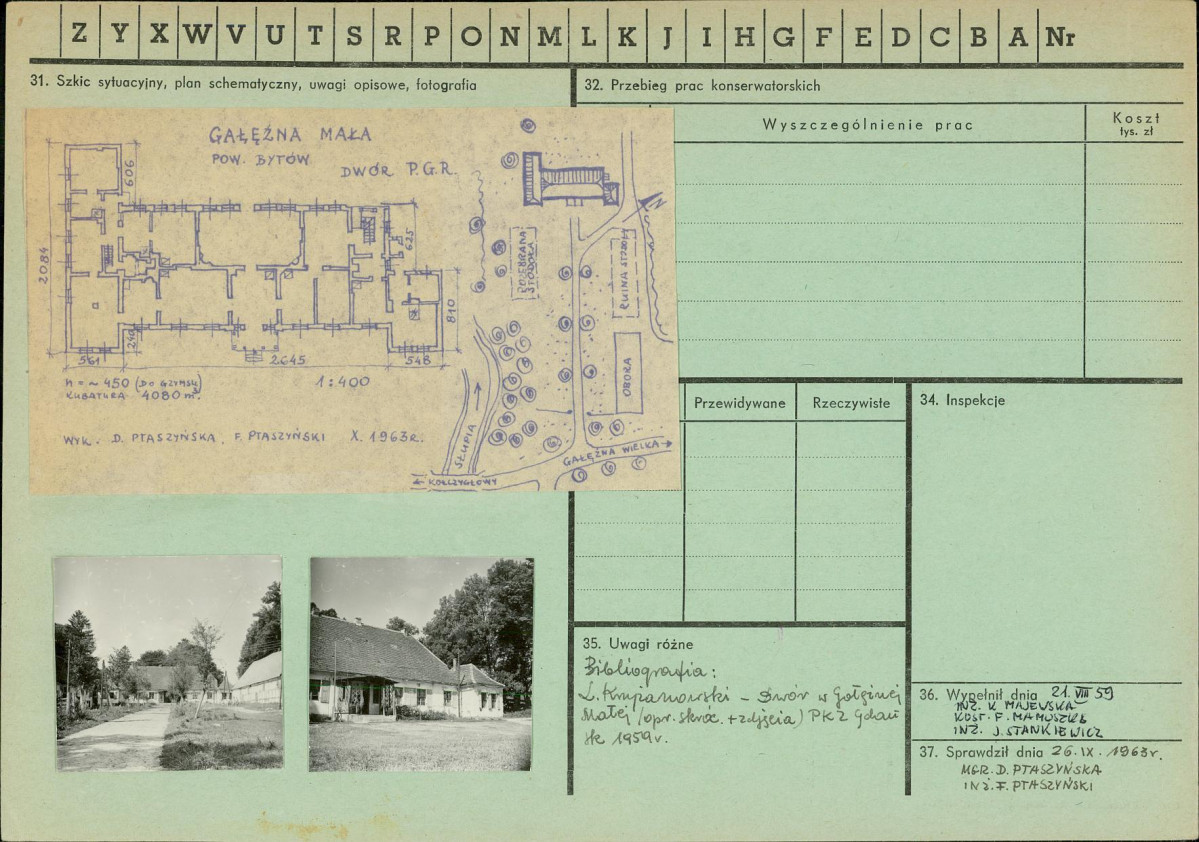 Z Y X W V U T S R P O N M L K J I H G F E D C B A Nr
31. Szkic sytuacyjny, plan schematyczny, uwagi opisowe, fotografia
GAŁĘŹNA MAŁA
POW. BYTÓW
DWÓR P.G.R.
606
2084
625
810
240
561
2645
548
H = ~ 450 (DO GZYMSU)
KUBATURA 4080 m³.
1:400
WYK. D. PTASZYŃSKA, F. PTASZYŃSKI X. 1963 r.
N
ROZEBRANA
STODOŁA
RUINA STODOŁY
OBORA
SŁUPIA
GAŁĘŹNA WIELKA →
← KOŁCZYGŁOWY
32. Przebieg prac konserwatorskich
Wyszczególnienie prac
Koszt
tys. zł
Przewidywane
Rzeczywiste
34. Inspekcje
35. Uwagi różne
Bibliografia:
L. Krzyżanowski – Dwór w Gałęźnej
Małej (opr. skróc. + zdjęcia) PKZ Gdań
sk 1959 r.
36. Wypełnił dnia 21. VIII 59
INŻ. K. MAJEWSKA
KOST. F. MAMUSZKA
INŻ. J. STANKIEWICZ
37. Sprawdził dnia 26. IX. 1963 r.
MGR. D. PTASZYŃSKA
INŻ. F. PTASZYŃSKI